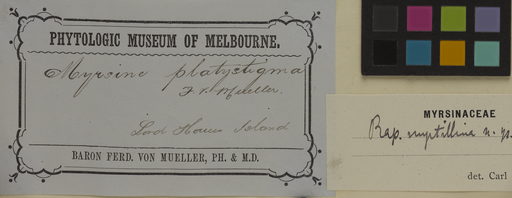 PHYTOLOGIC MUSEUM OF MELBOURNE.
Myrsine platystigma
F v Mueller.
Lord Howes Island
BARON FERD. VON MUELLER, PH. & M.D.
MYRSINACEAE
Rap. myrtillina n. sp.
det. Carl